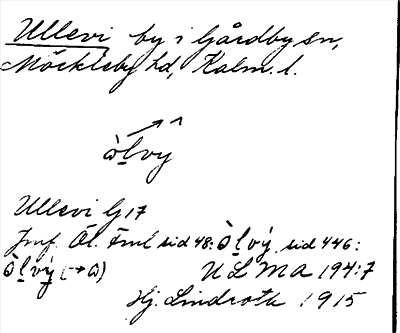 Ullevi by i Gårdby sn,
Möckleby hd, Kalm. l.
òlvy
Ullevi G 17
Jmf. Öl. Fmé sid 48: òlvý, sid 446:
òlvý (→ɷ) ULMA 194:7
Hj. Lindroth 1915